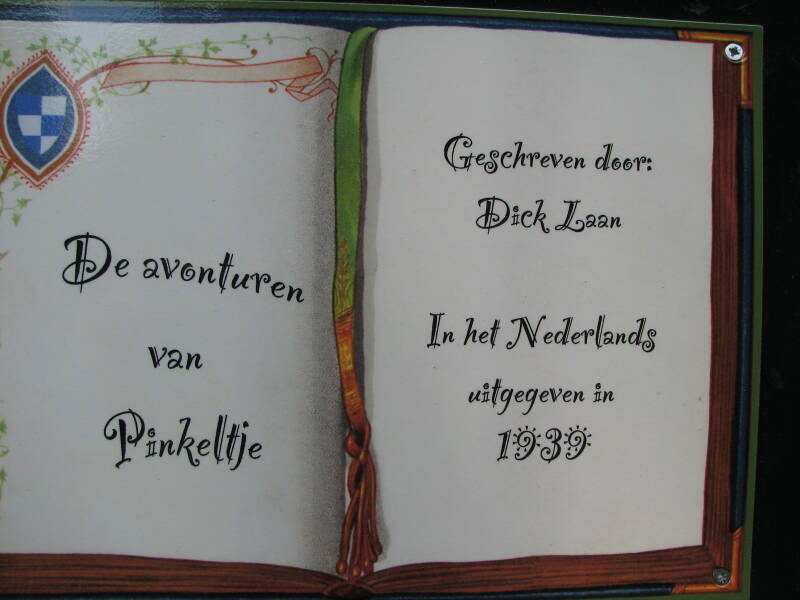 De avonturen
van
Pinkeltje
Geschreven door:
Dick Laan
In het Nederlands
uitgegeven in
1939